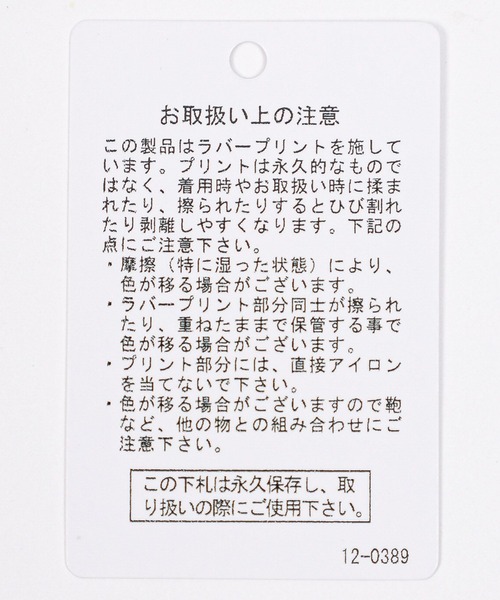 お取扱い上の注意
この製品はラバープリントを施して
います。プリントは永久的なもので
はなく、着用時やお取扱い時に揉ま
れたり、擦られたりするとひび割れ
たり剥離しやすくなります。下記の
点にご注意下さい。
・摩擦（特に湿った状態）により、
色が移る場合がございます。
・ラバープリント部分同士が擦られ
たり、重ねたままで保管する事で
色が移る場合がございます。
・プリント部分には、直接アイロン
を当てないで下さい。
・色が移る場合がございますので鞄
など、他の物との組み合わせにご
注意下さい。
この下札は永久保存し、取
り扱いの際にご使用下さい。
12-0389